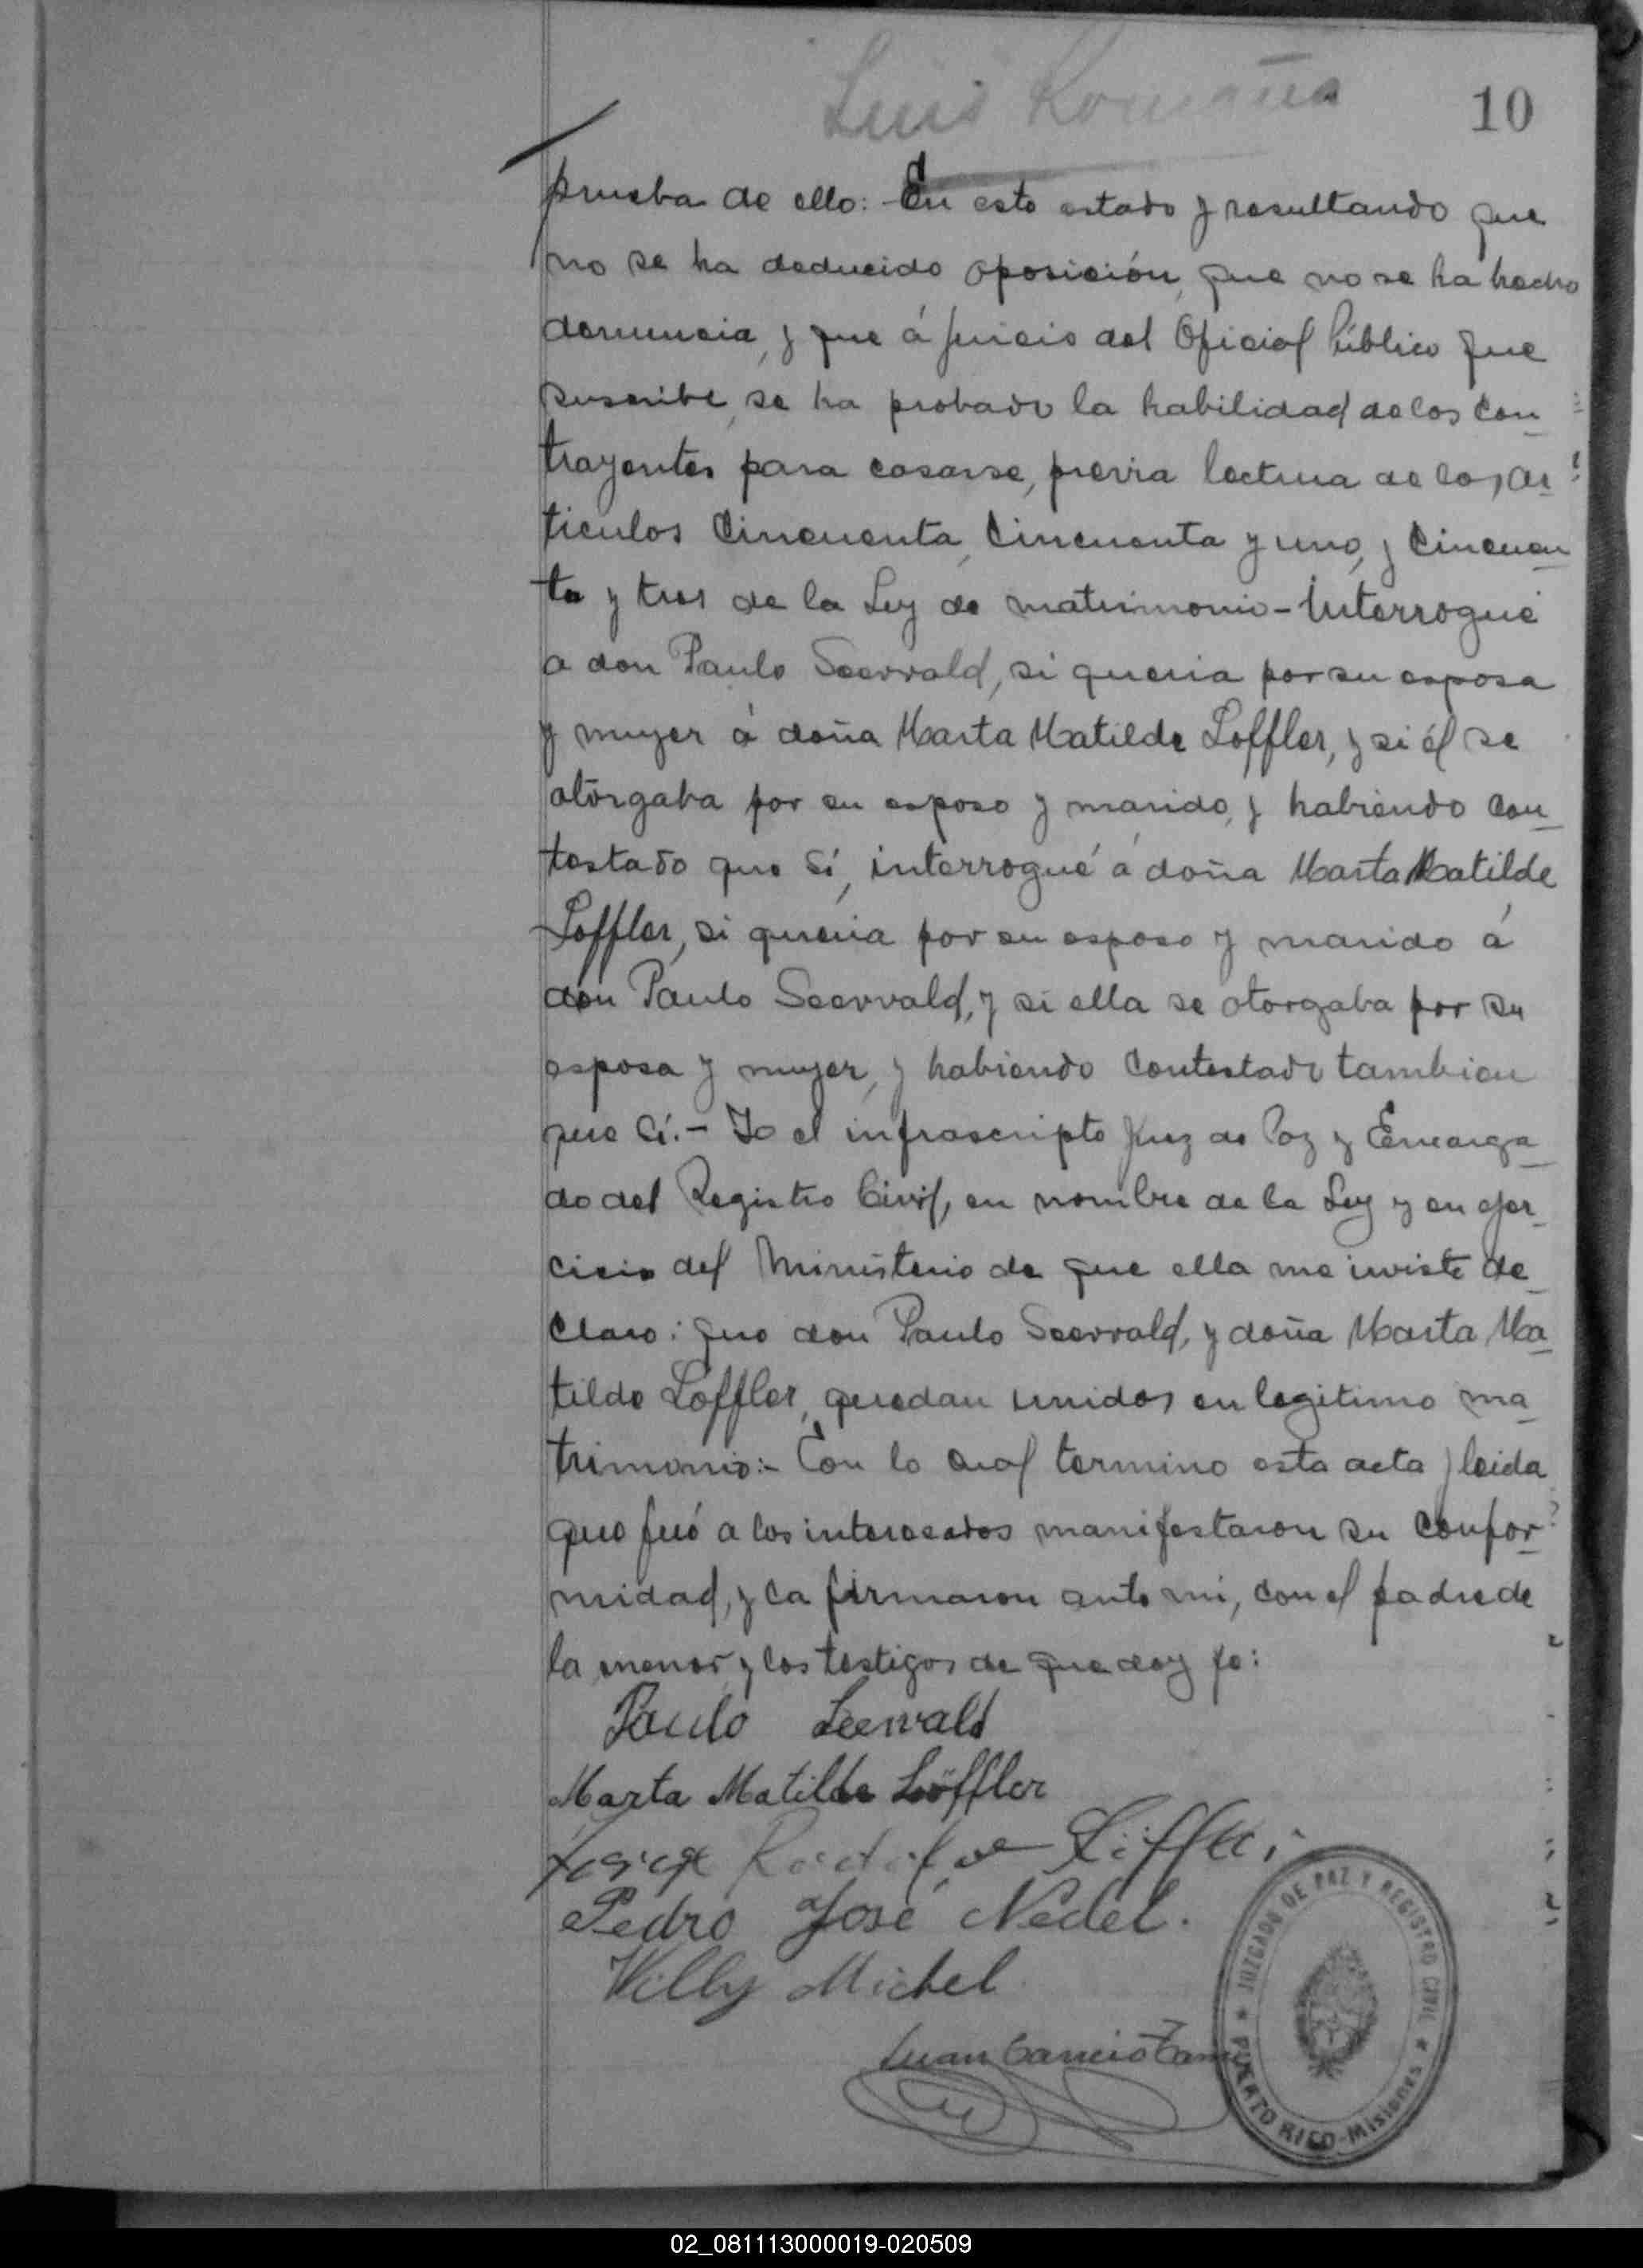 Luis Romaña
10
prueba de ello:- En este estado y resultando que
no se ha deducido oposición, que no se ha hecho
denuncia, y que á juicio del Oficial Público que
suscribe, se ha probado la habilidad de los con_
trayentes para casarse, previa lectura de los ar_
ticulos Cincuenta, Cincuenta y uno, y Cincuen_
ta y tres de la Ley de matrimonio - Interrogué
a don Paulo Seewald, si queria por su esposa
y mujer á doña Marta Matilde Loffler, y si él se
otorgaba por su esposo y marido, y habiendo con_
testado que sí, interrogué á doña Marta Matilde
Loffler, si queria por su esposo y marido á
don Paulo Seewald, y si ella se otorgaba por su
esposa y mujer, y habiendo contestado tambien
que sí.- Yo el infrascripto Juez de Paz y Encarga_
do del Registro Civil, en nombre de la Ley y en ejer_
cicio del Ministerio de que ella me inviste de_
claro: que don Paulo Seewald, y doña Marta Ma_
tilde Loffler, quedan unidos en legitimo ma_
trimonio:- Con lo cual termino esta acta y leida
que fué a los interesados manifestaron su confor_
midad, y la firmaron ante mi, con el padre de
la menor y los testigos de que doy fe:
Paulo Seewald
Marta Matilde Löffler
Rodolfo Löffler
Pedro José Nedel.
Willy Michel
Juan
JUZGADO DE PAZ Y REGISTRO CIVIL
PUERTO RICO - Misiones
02_081113000019-020509